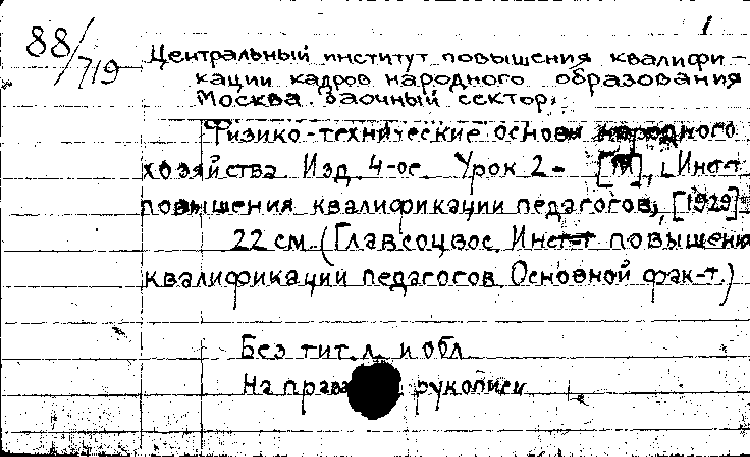 1
88/719
Центральный институт повышения квалифи-
кации кадров народного образования
Москва. Заочный сектор.
Физико-технические основы народного
хозяйства. Изд. 4-ое. Урок 2- [М], Инст-т
повышения квалификации педагогов, [1929].
22 см. (Главсоцвос. Инст-т повышения
квалификации педагогов. Основной фак-т.)
Без тит. л. и обл.
На рукописи